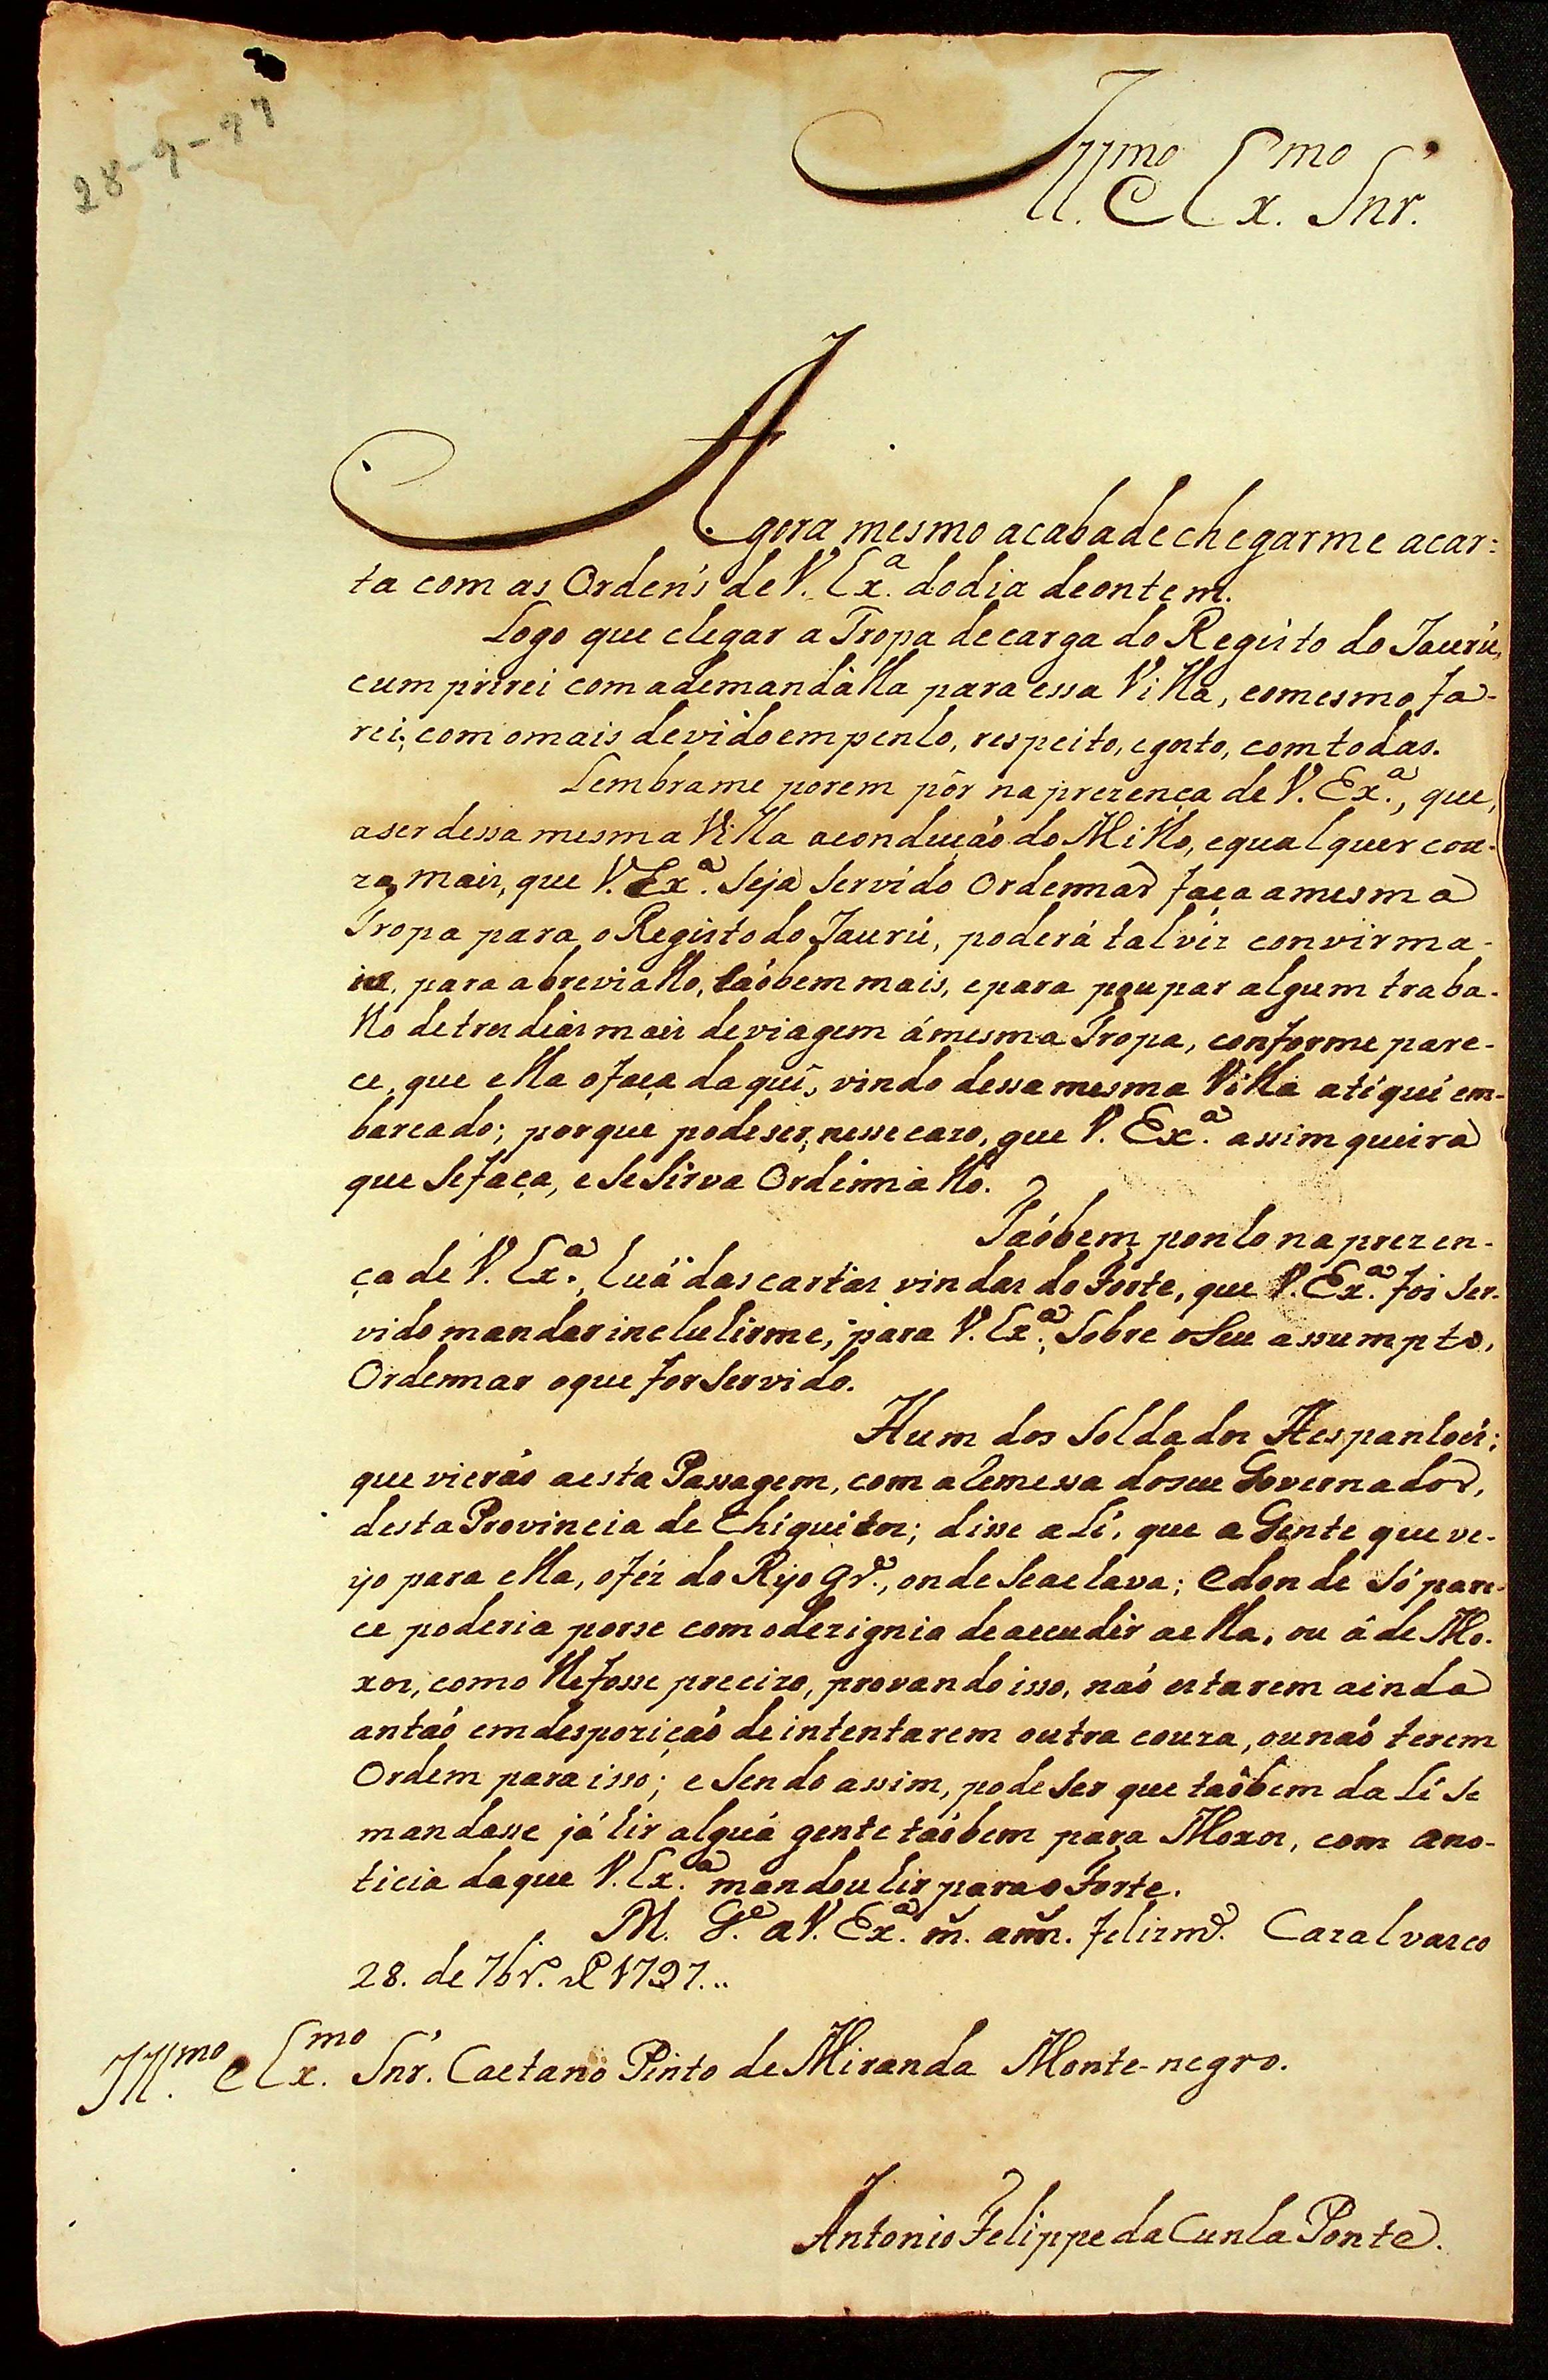 28-9-97
Ill.mo e Ex.mo Snr.
Agora mesmo acaba de chegarme a car:
ta com as Ordens de V. Ex.a do dia de ontem.
Logo que chegar a Tropa de carga do Registo do Jaurú,
cumprirei com a de mandàlla para essa Villa, e o mesmo fa-
rei, com o mais devido empenho, respeito, e gosto, com todas.
Lembrame porem pôr na prezença de V. Ex.a, que,
a ser dessa mesma Villa a condução do Milho, e qualquer cou-
za mais, que V. Ex.a Seja Servido Ordennar faça a mesma
Tropa para o Registo do Jaurú, poderá talvéz convir ma-
is, para abreviallo, taóbem mais, e para poupar algum traba-
lho de tres dias mais de viagem á mesma Tropa, conforme pare-
ce, que ella o faça daqui, vindo dessa mesma Villa atéqui em-
barcado; porque pode ser, nesse cazo, que V. Ex.a assim queira
que Se faça, e Se Sirva Ordennallo.
Taóbem ponho na prezen-
ça de V. Ex.a, huã das cartas vindas do Forte, que V. Ex.a foi Ser-
vido mandar incluhirme, para V. Ex.a, Sobre o Seu assumpto,
Ordennar o que for Servido.
Hum dos Soldados Hespanhoés,
que vieráo a esta Passagem, com a remessa do seu Governador,
desta Provincia de Chiquitos; disse ali, que a Gente que ve-
yo para ella, o féz do Ryo Gr.e, onde Se achava; e donde Só pare-
ce poderia porse com o dezignio de accudir a ella, ou á de Mo-
xos, como lhe fosse precizo, provando isso, naó estarem ainda
antaó em despoziçaó de intentarem outra couza, ou naó terem
Ordem para isso; e Sendo assim, pode Ser que taóbem dali Se
mandasse já hir alguá gente taóbem para Moxos, com a no-
ticia da que V. Ex.a mandou hir para o Forte.
M. G.e a V. Ex.a m.s ann.s felizm.e Cazalvasco
28. de 7br.o de 1797...
Ill.mo e Ex.mo Snr. Caetano Pinto de Miranda Monte-negro.
Antonio Felippe da Cunha Ponte.